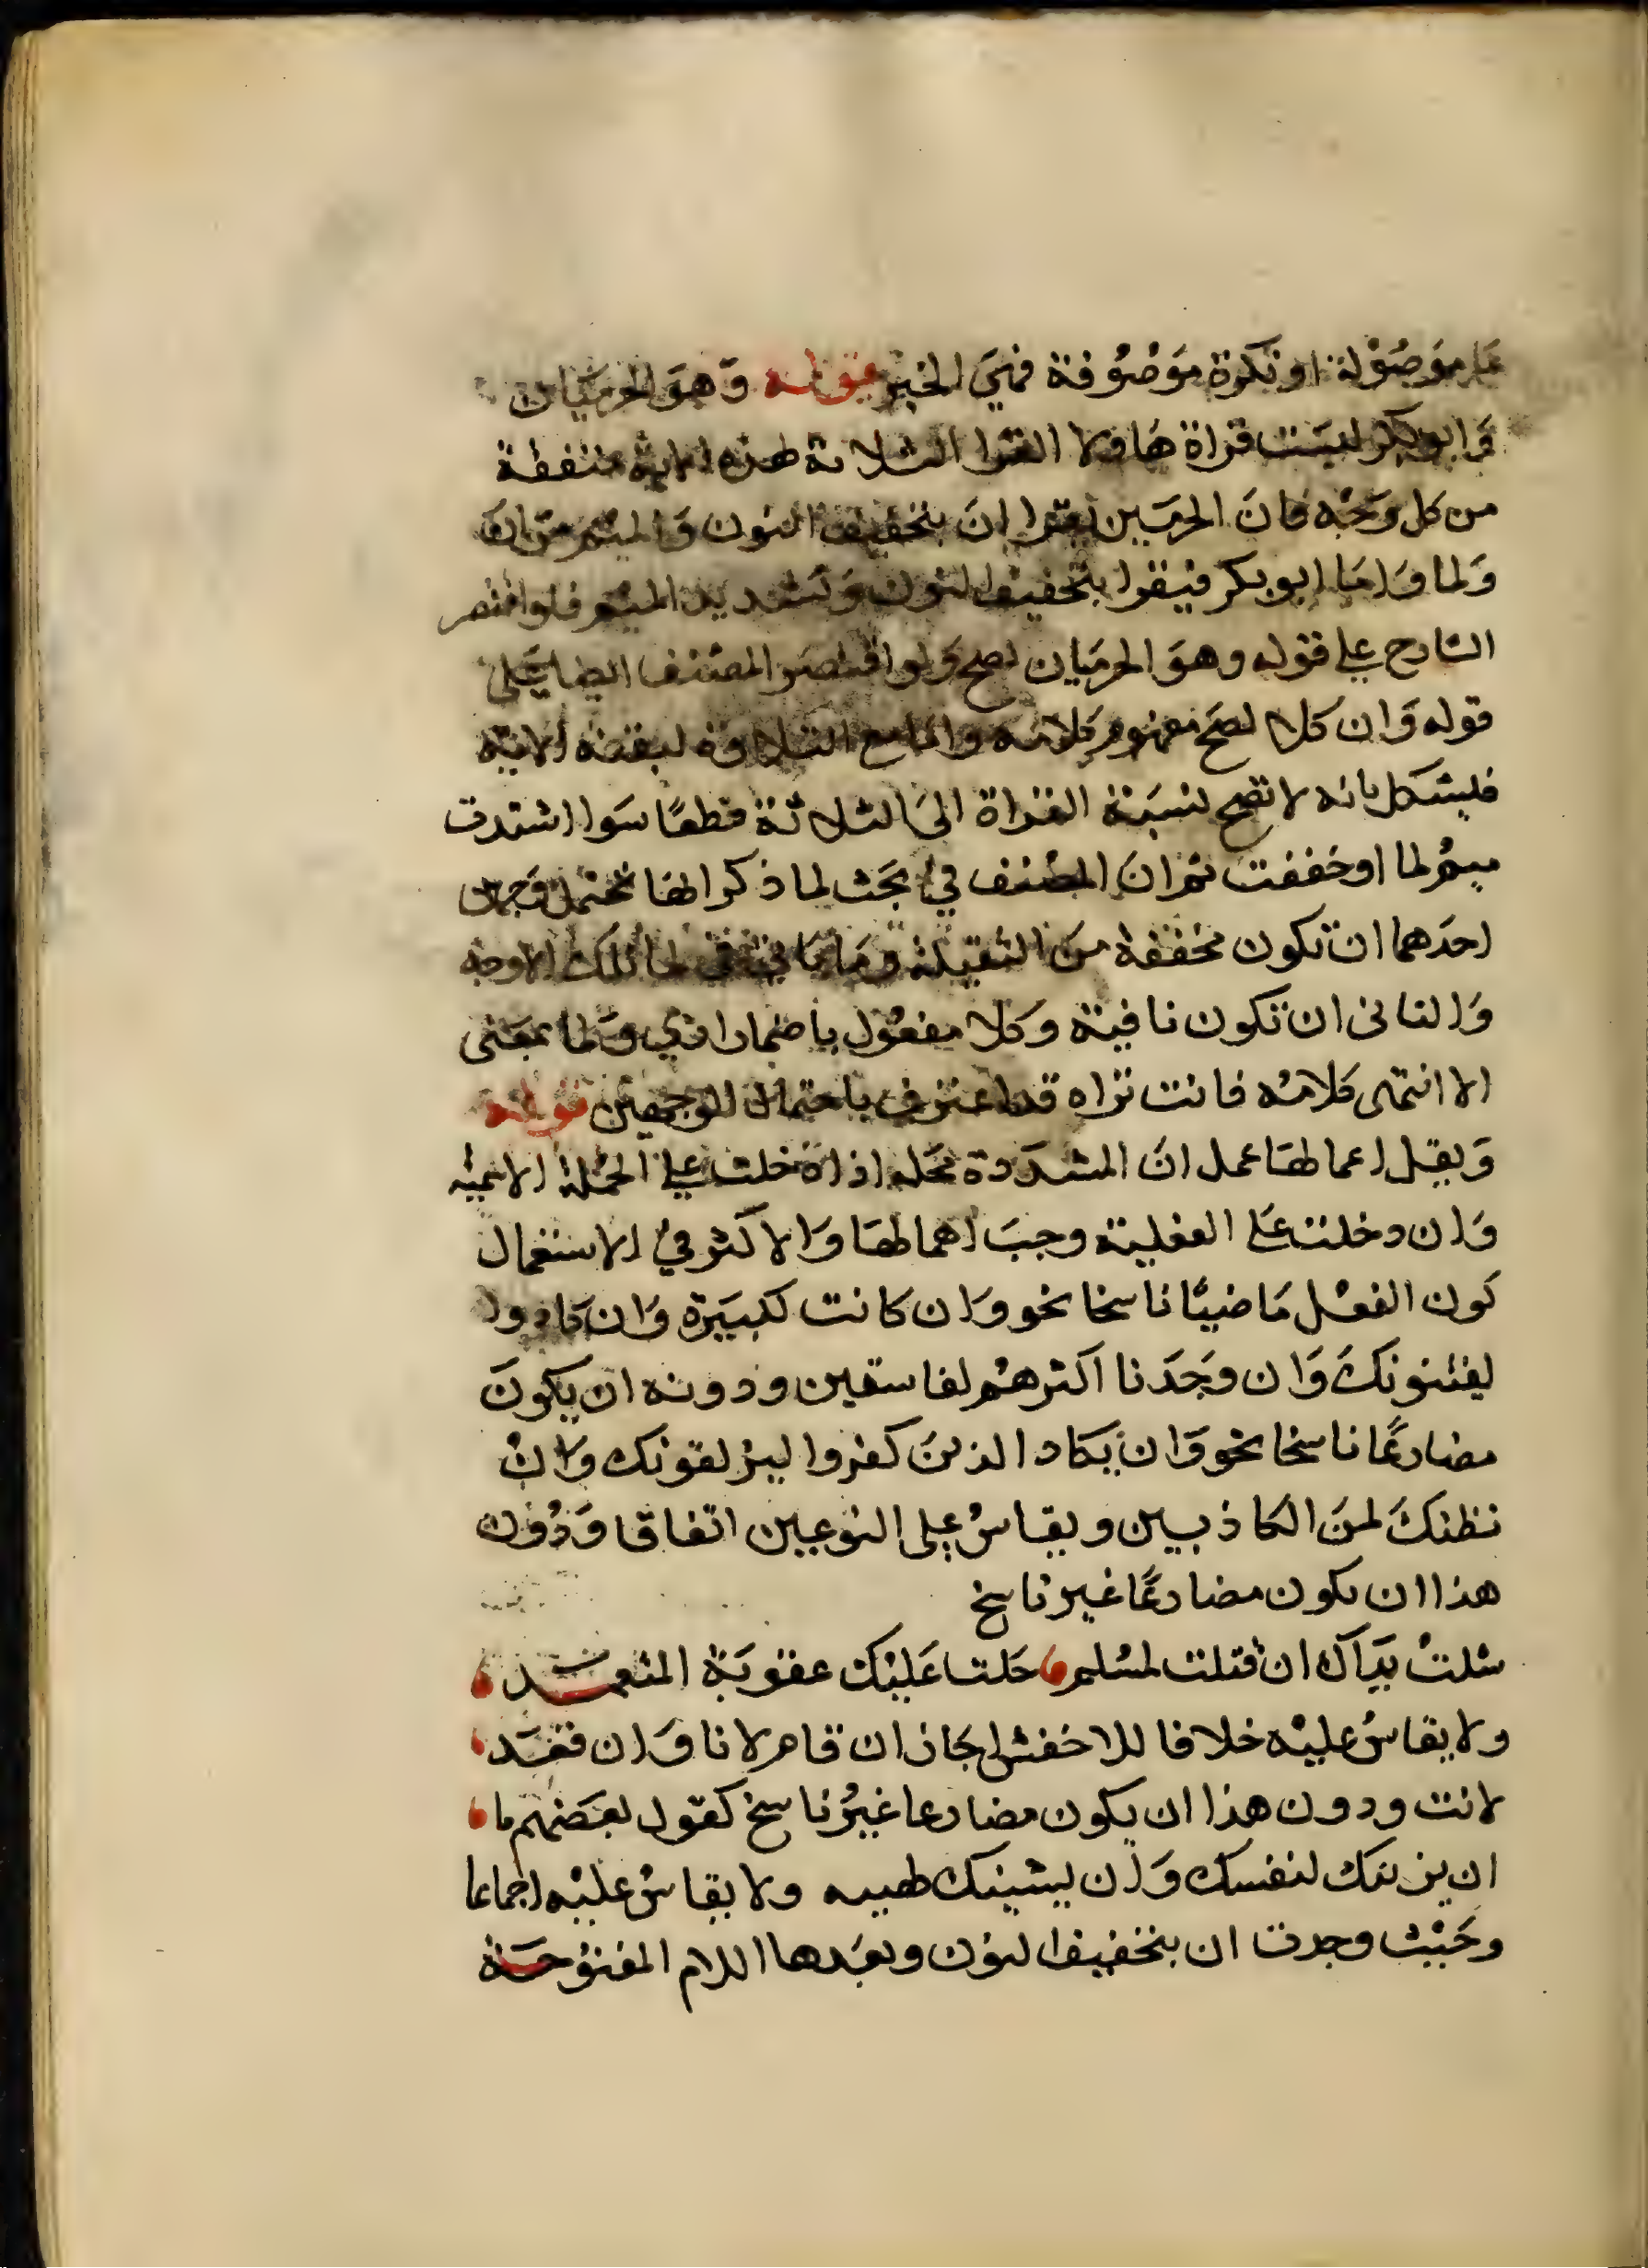 ما موصولة او نكرة موصوفة فهي الخبر قوله وهو الحرميان
وابو بكر ليست قراة هاولا القرا الثلاثة لهذه الاية متفقة
من كل وجه فان الحرميين يقرا ان بتخفيف النون والميم من ان
ولما واما ابو بكر فيقرا بتخفيف النون وتشديد الميم فلو اقتصر
الشارح على قوله وهو الحرميان لصح ولو اقتصر المصنف ايضا على
قوله وان كلا لصح مفهوم كلامه واما مع التلاوة لبقية الاية
فيشكل بانه لا تصح نسبة القراة الى الثلاثة قطعا سوا اشتدت
ميم لما او خففت ثم ان المصنف في بحث لما ذكر انها تحتمل وجهين
احدهما ان تكون مخففة من الثقيلة وياتي في لما تلك الاوجه
والثاني ان تكون نافية وكلا مفعول باضمار ارى ولما بمعنى
الا انتهى كلامه فانت تراه قد اعترف باحتمال الوجهين قوله
ويقل اعمالها عمل ان المشددة محله اذا دخلت على الجملة الاسمية
وان دخلت على الفعلية وجب اهمالها والاكثر في الاستعمال
كون الفعل ماضيا ناسخا نحو وان كانت لكبيرة وان كادوا
ليفتنونك وان وجدنا اكثرهم لفاسقين ودونه ان يكون
مضارعا ناسخا نحو وان يكاد الذين كفروا ليزلقونك وان
نظنك لمن الكاذبين ويقاس على النوعين اتفاقا ودون
هذا ان يكون مضارعا غير ناسخ
شلت يداك ان قتلت لمسلم حلت عليك عقوبة المتعمد
ولا يقاس عليه خلافا للاخفش اجاز ان قام لانا وان قعد
لانت ودون هذا ان يكون مضارعا غير ناسخ كقول بعضهم
ان يزينك لنفسك وان يشينك لهيه ولا يقاس عليه اجماعا
وحيث وجدت ان بتخفيف النون وبعدها اللام المفتوحة